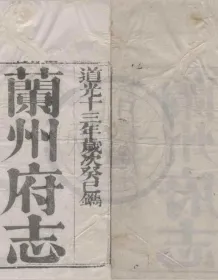 道光十三年歲次癸巳鐫
蘭州府志